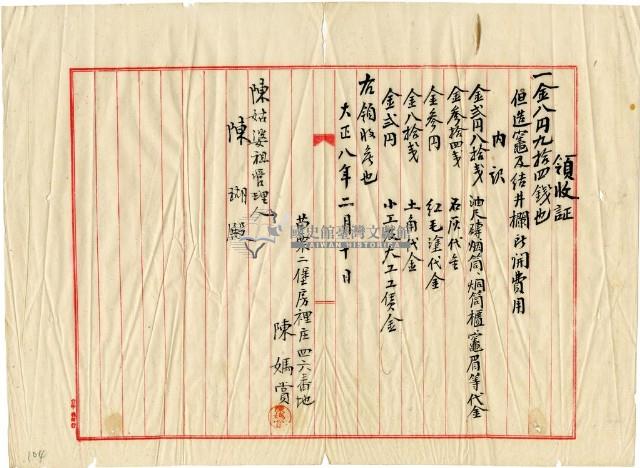 領收証
一金八円九拾四錢也
但造竈及結井欄所開費用
內訳
金弍円八拾戔 油尺磚烟筒烟筒櫃竈眉等代金
金参拾四戔 石灰代金
金参円 紅毛塗代金
金八拾戔 土角代金
金弍円 小工及大工工賃金
右領收候也
大正八年二月 十日
苑裡二堡房裡庄四六番地
陳媽賞
陳姑婆祖管理人
陳瑚殿
國史館臺灣文獻館
TAIWAN HISTORICA
104